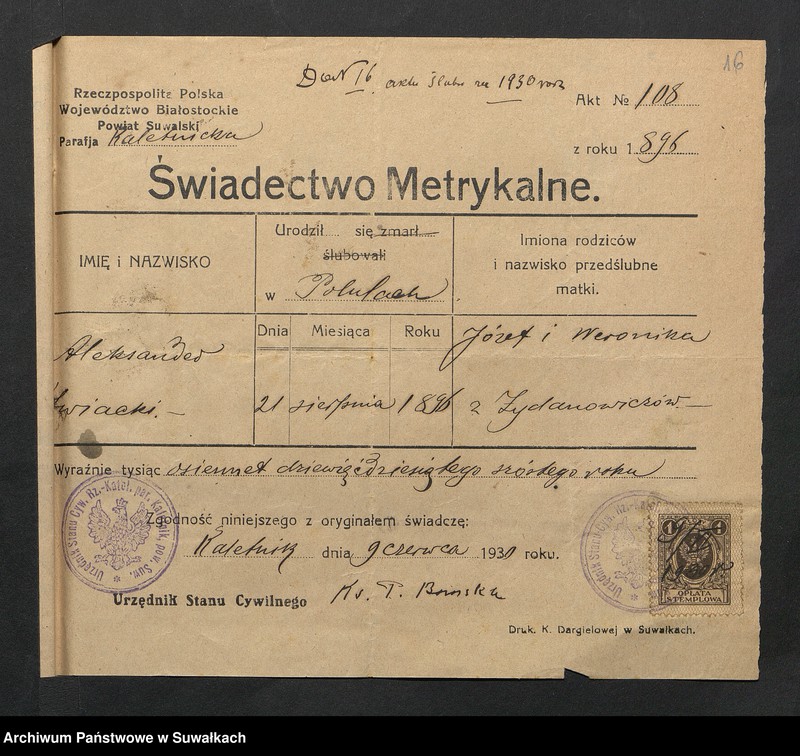 16
Do № 16 aktu ślubu za 1930 rok
Rzeczpospolita Polska
Województwo Białostockie
Powiat Suwalski
Parafja
Akt № 108
z roku 1.896
Świadectwo Metrykalne.
IMIĘ i NAZWISKO
Urodził się zmarł
ślubowali
w
Imiona rodziców
i nazwisko przedślubne
matki.
Dnia Miesiąca Roku
Aleksander
21 sierpnia 1896
Józef i Weronika
z Żydanowiczów.—
Wyraźnie tysiąc osiemset dziewięćdziesiątego szóstego roku
Zgodność niniejszego z oryginałem świadczę:
Kaletnik dnia 9 czerwca 1930 roku.
Urzędnik Stanu Cywilnego Ks. P.
Urzędnik Stanu Cyw. Rz.-Katol. par. Kaletnik, pow. Suw.
Urzędnik Stanu Cyw. Rz.-
1 1
OPŁATA
STEMPLOWA
Druk. K. Dargielowej w Suwałkach.
Archiwum Państwowe w Suwałkach